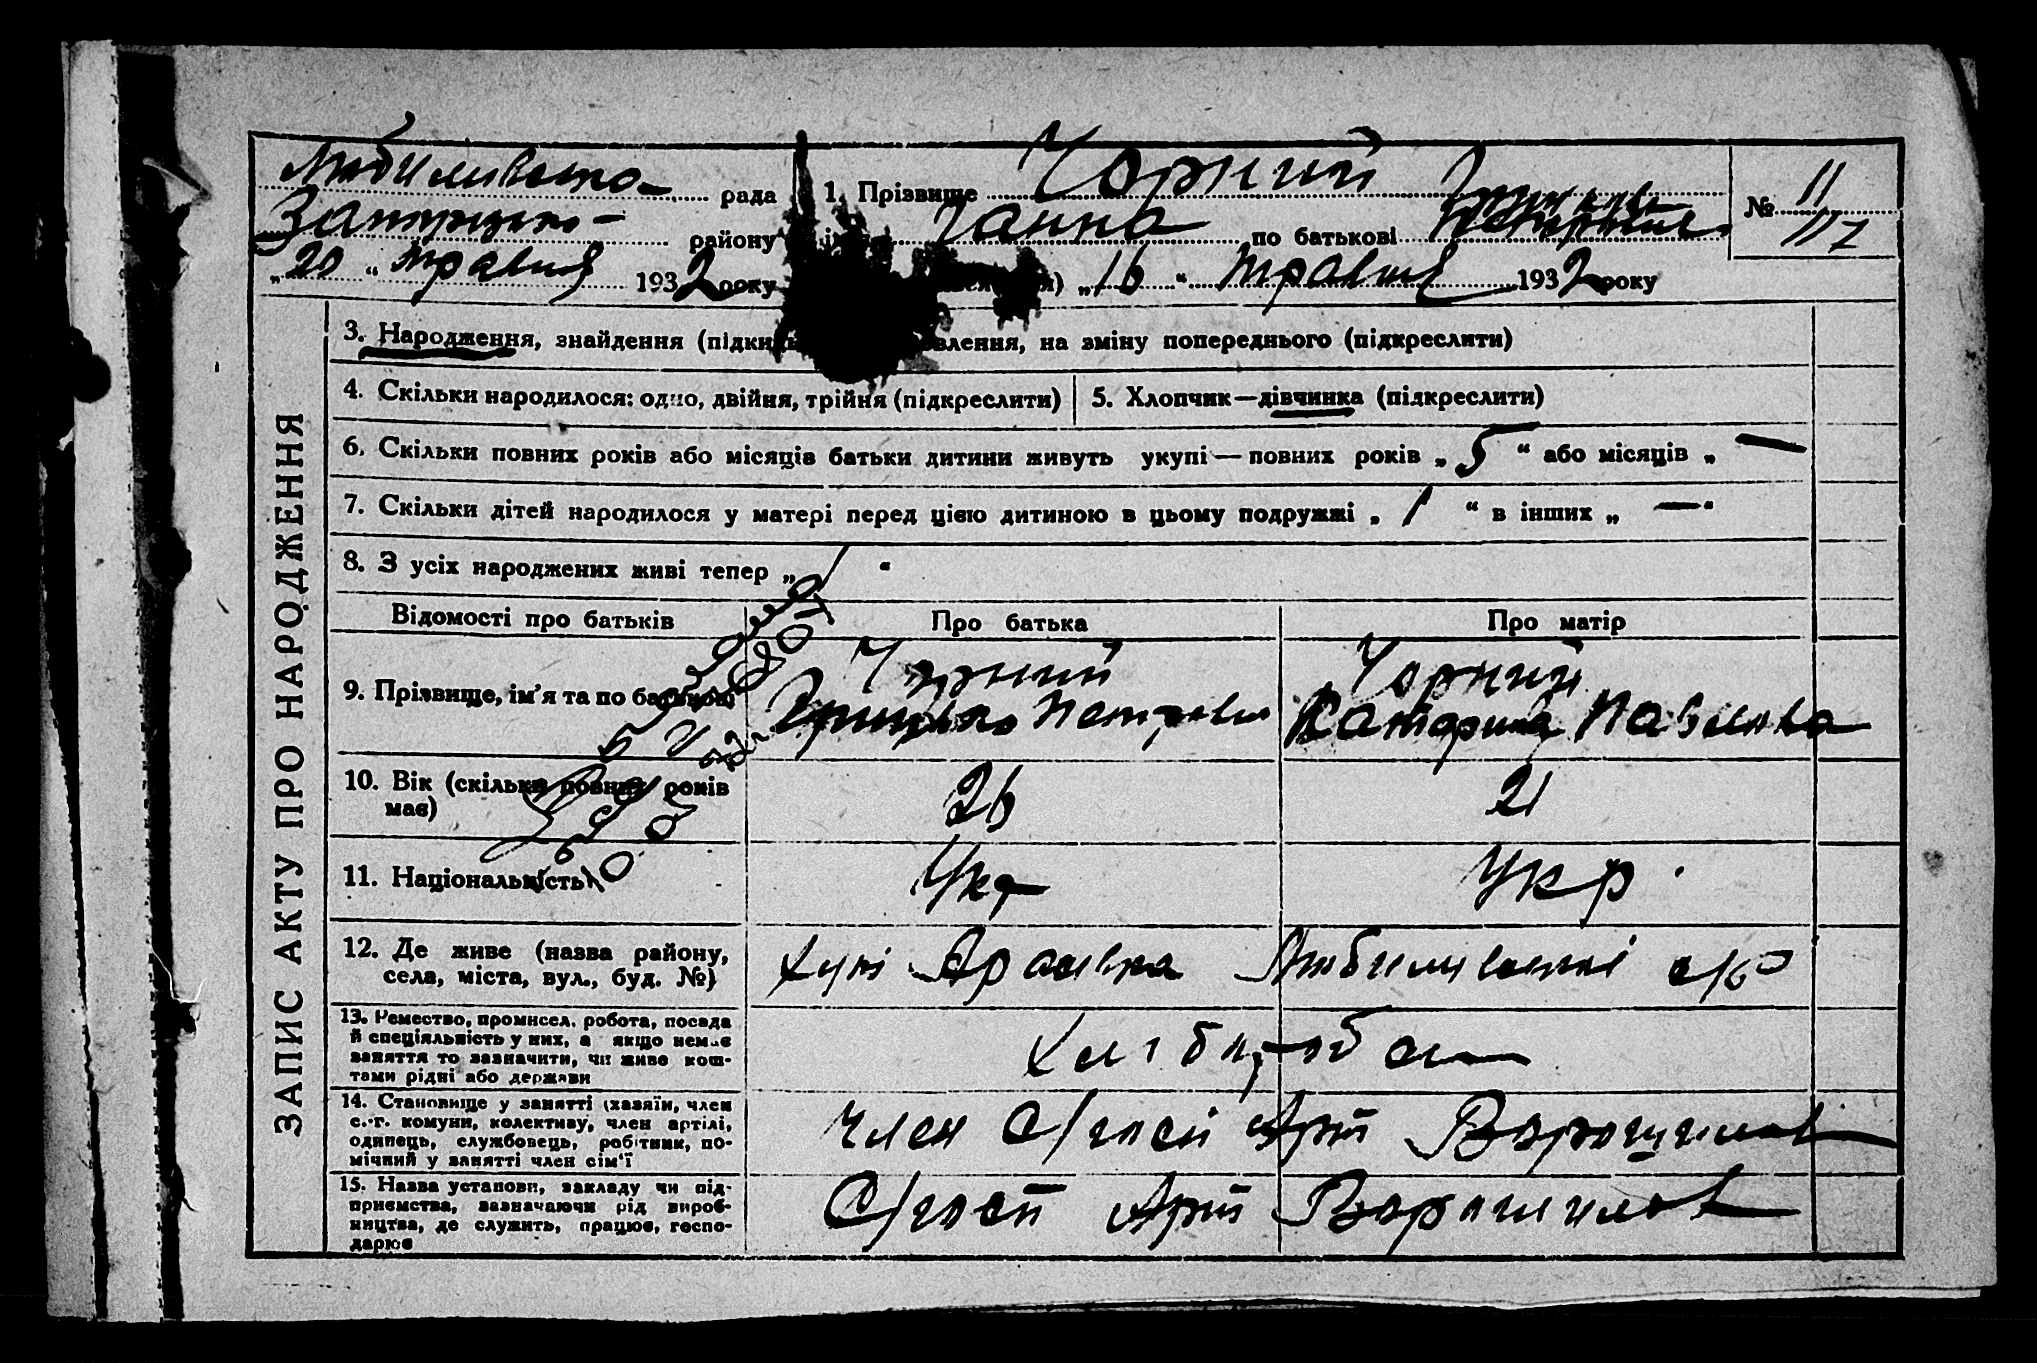 рада 1. Прізвище Чорний № 11
району Ганна по батькові 117
„20“ травня 1932 року „16“ травня 1932 року
3. Народження, знайдення (підки влення, на зміну попереднього (підкреслити)
4. Скільки народилося: одно, двійня, трійня (підкреслити) 5. Хлопчик—дівчинка (підкреслити)
6. Скільки повних років або місяців батьки дитини живуть укупі — повних років „5“ або місяців „—
7. Скільки дітей народилося у матері перед цією дитиною в цьому подружжі „1“ в інших „—“
8. З усіх народжених живі тепер „1“
Відомості про батьків Про батька Про матір
9. Прізвище, ім'я та по батькові Чорний Чорний
Грицько Петрович Катерина Павлівна
10. Вік (скільки повних років має) 26 21
11. Національність Укр Укр.
12. Де живе (назва району, села, міста, вул., буд. №) Хут
13. Ремество, промисел, робота, посада й спеціяльність у них, а якщо немає заняття то зазначити, чи живе коштами рідні або держави
14. Становище у занятті (хазяїн, член с.-г. комуни, колективу, член артілі, одинець, службовець, робітник, помічний у занятті член сім'ї Член С/госп Арт Ворошилов
15. Назва установи, закладу чи підприємства, зазначаючи рід виробництва, де служить, працює, господарює С/госп Арт Ворошилов
ЗАПИС АКТУ ПРО НАРОДЖЕННЯ